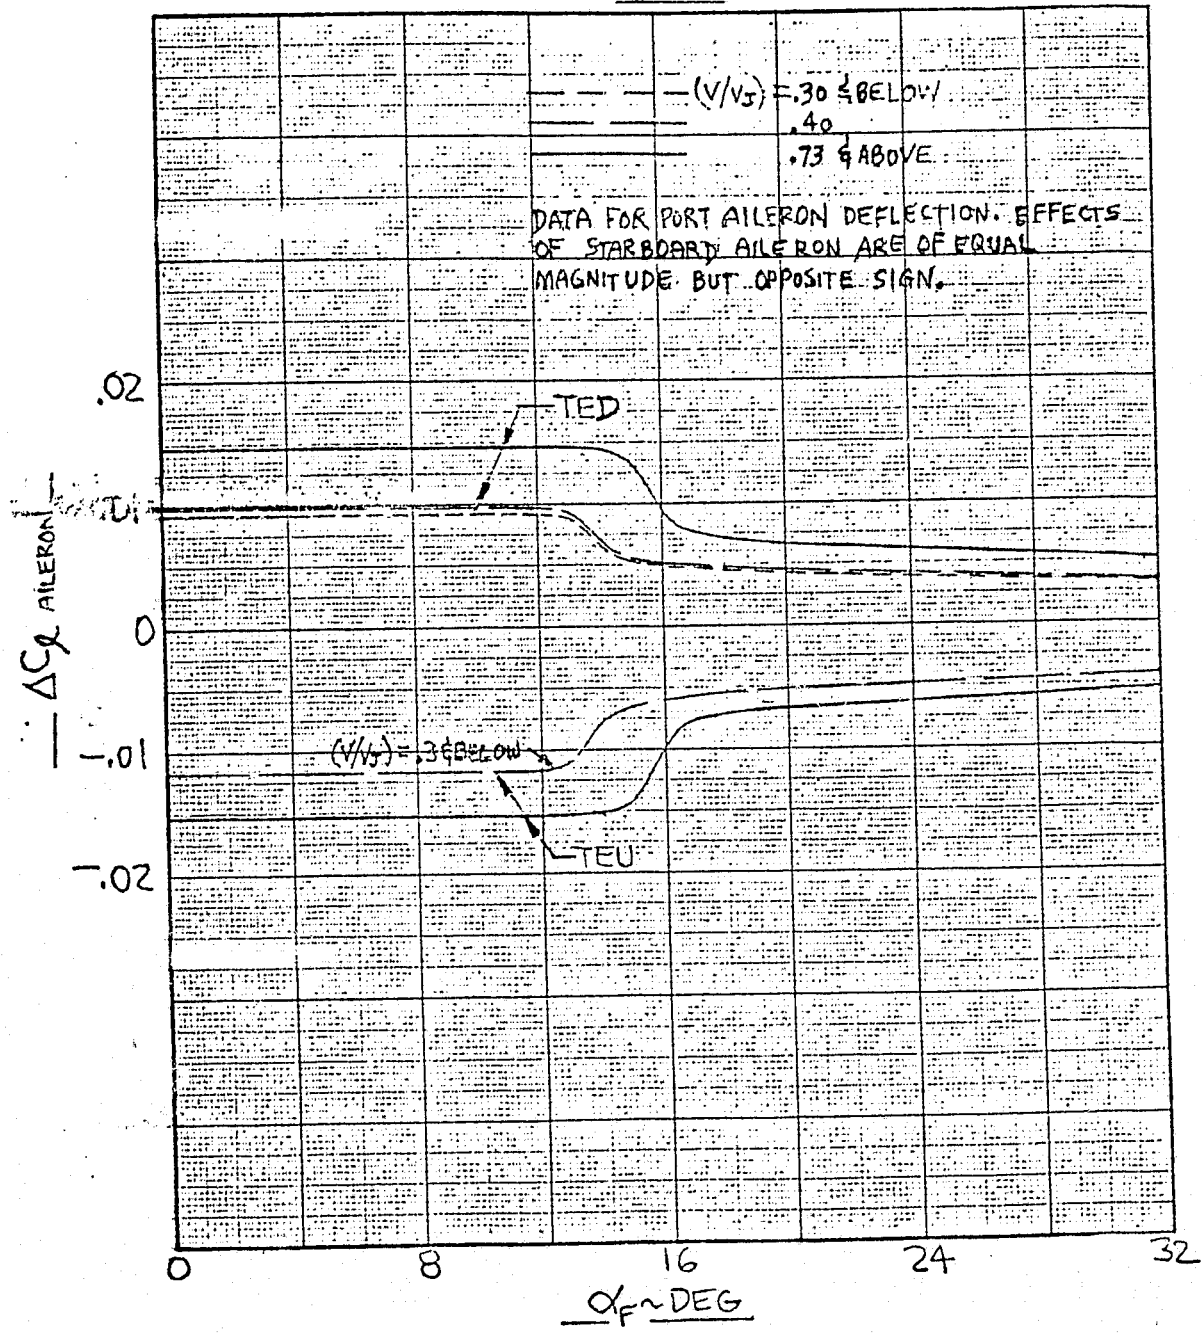 (V/VJ) = .30 & BELOW
.40
.73 & ABOVE
DATA FOR PORT AILERON DEFLECTION. EFFECTS
OF STARBOARD AILERON ARE OF EQUAL
MAGNITUDE BUT OPPOSITE SIGN.
.02
TED
.01
0
ΔCℓ AILERON
(V/VJ) = .3 & BELOW
-.01
TEU
-.02
0 8 16 24 32
αF ~ DEG